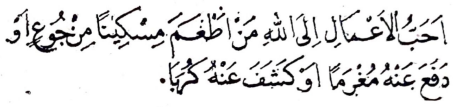 اَحَبُّ الْاَعْمَالِ اِلَى اللهِ مَنْ اَطْعَمَ مِسْكِيْنًا مِنْ جُوْعٍ اَوْ
دَفَعَ عَنْهُ مُغْرَمًا اَوْ كَشَفَ عَنْهُ كَرْبًا.